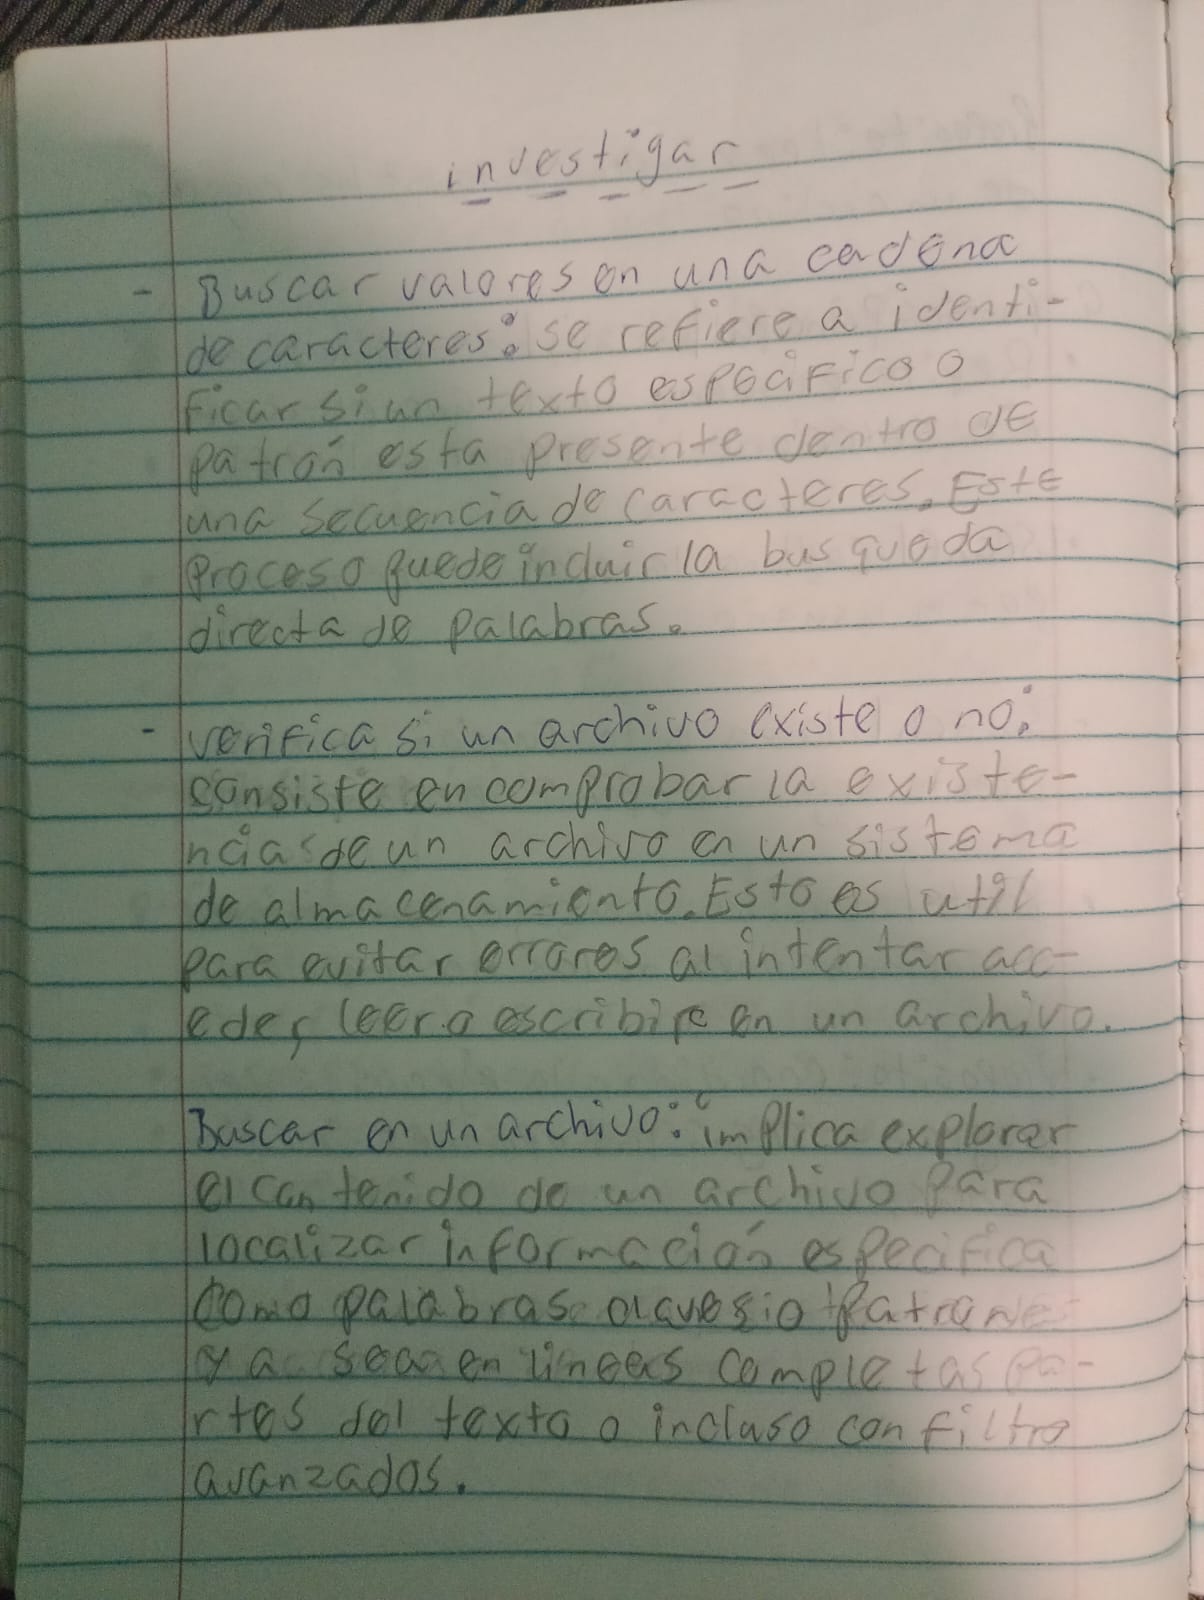 investigar
- Buscar valores en una cadena
de caracteres: se refiere a identi-
ficar si un texto especifico o
patrón esta presente dentro de
una secuencia de caracteres. Este
proceso puede incluir la busqueda
directa de palabras.
- verifica si un archivo existe o no:
consiste en comprobar la existe-
ncias de un archivo en un sistema
de almacenamiento. Esto es util
para evitar errores al intentar acc-
eder, leer o escribir en un archivo.
Buscar en un archivo: implica explorar
el contenido de un archivo para
localizar información especifica
como palabras claves o patrones
ya sea en lineas completas pa-
rtes del texto o incluso con filtro
avanzados.